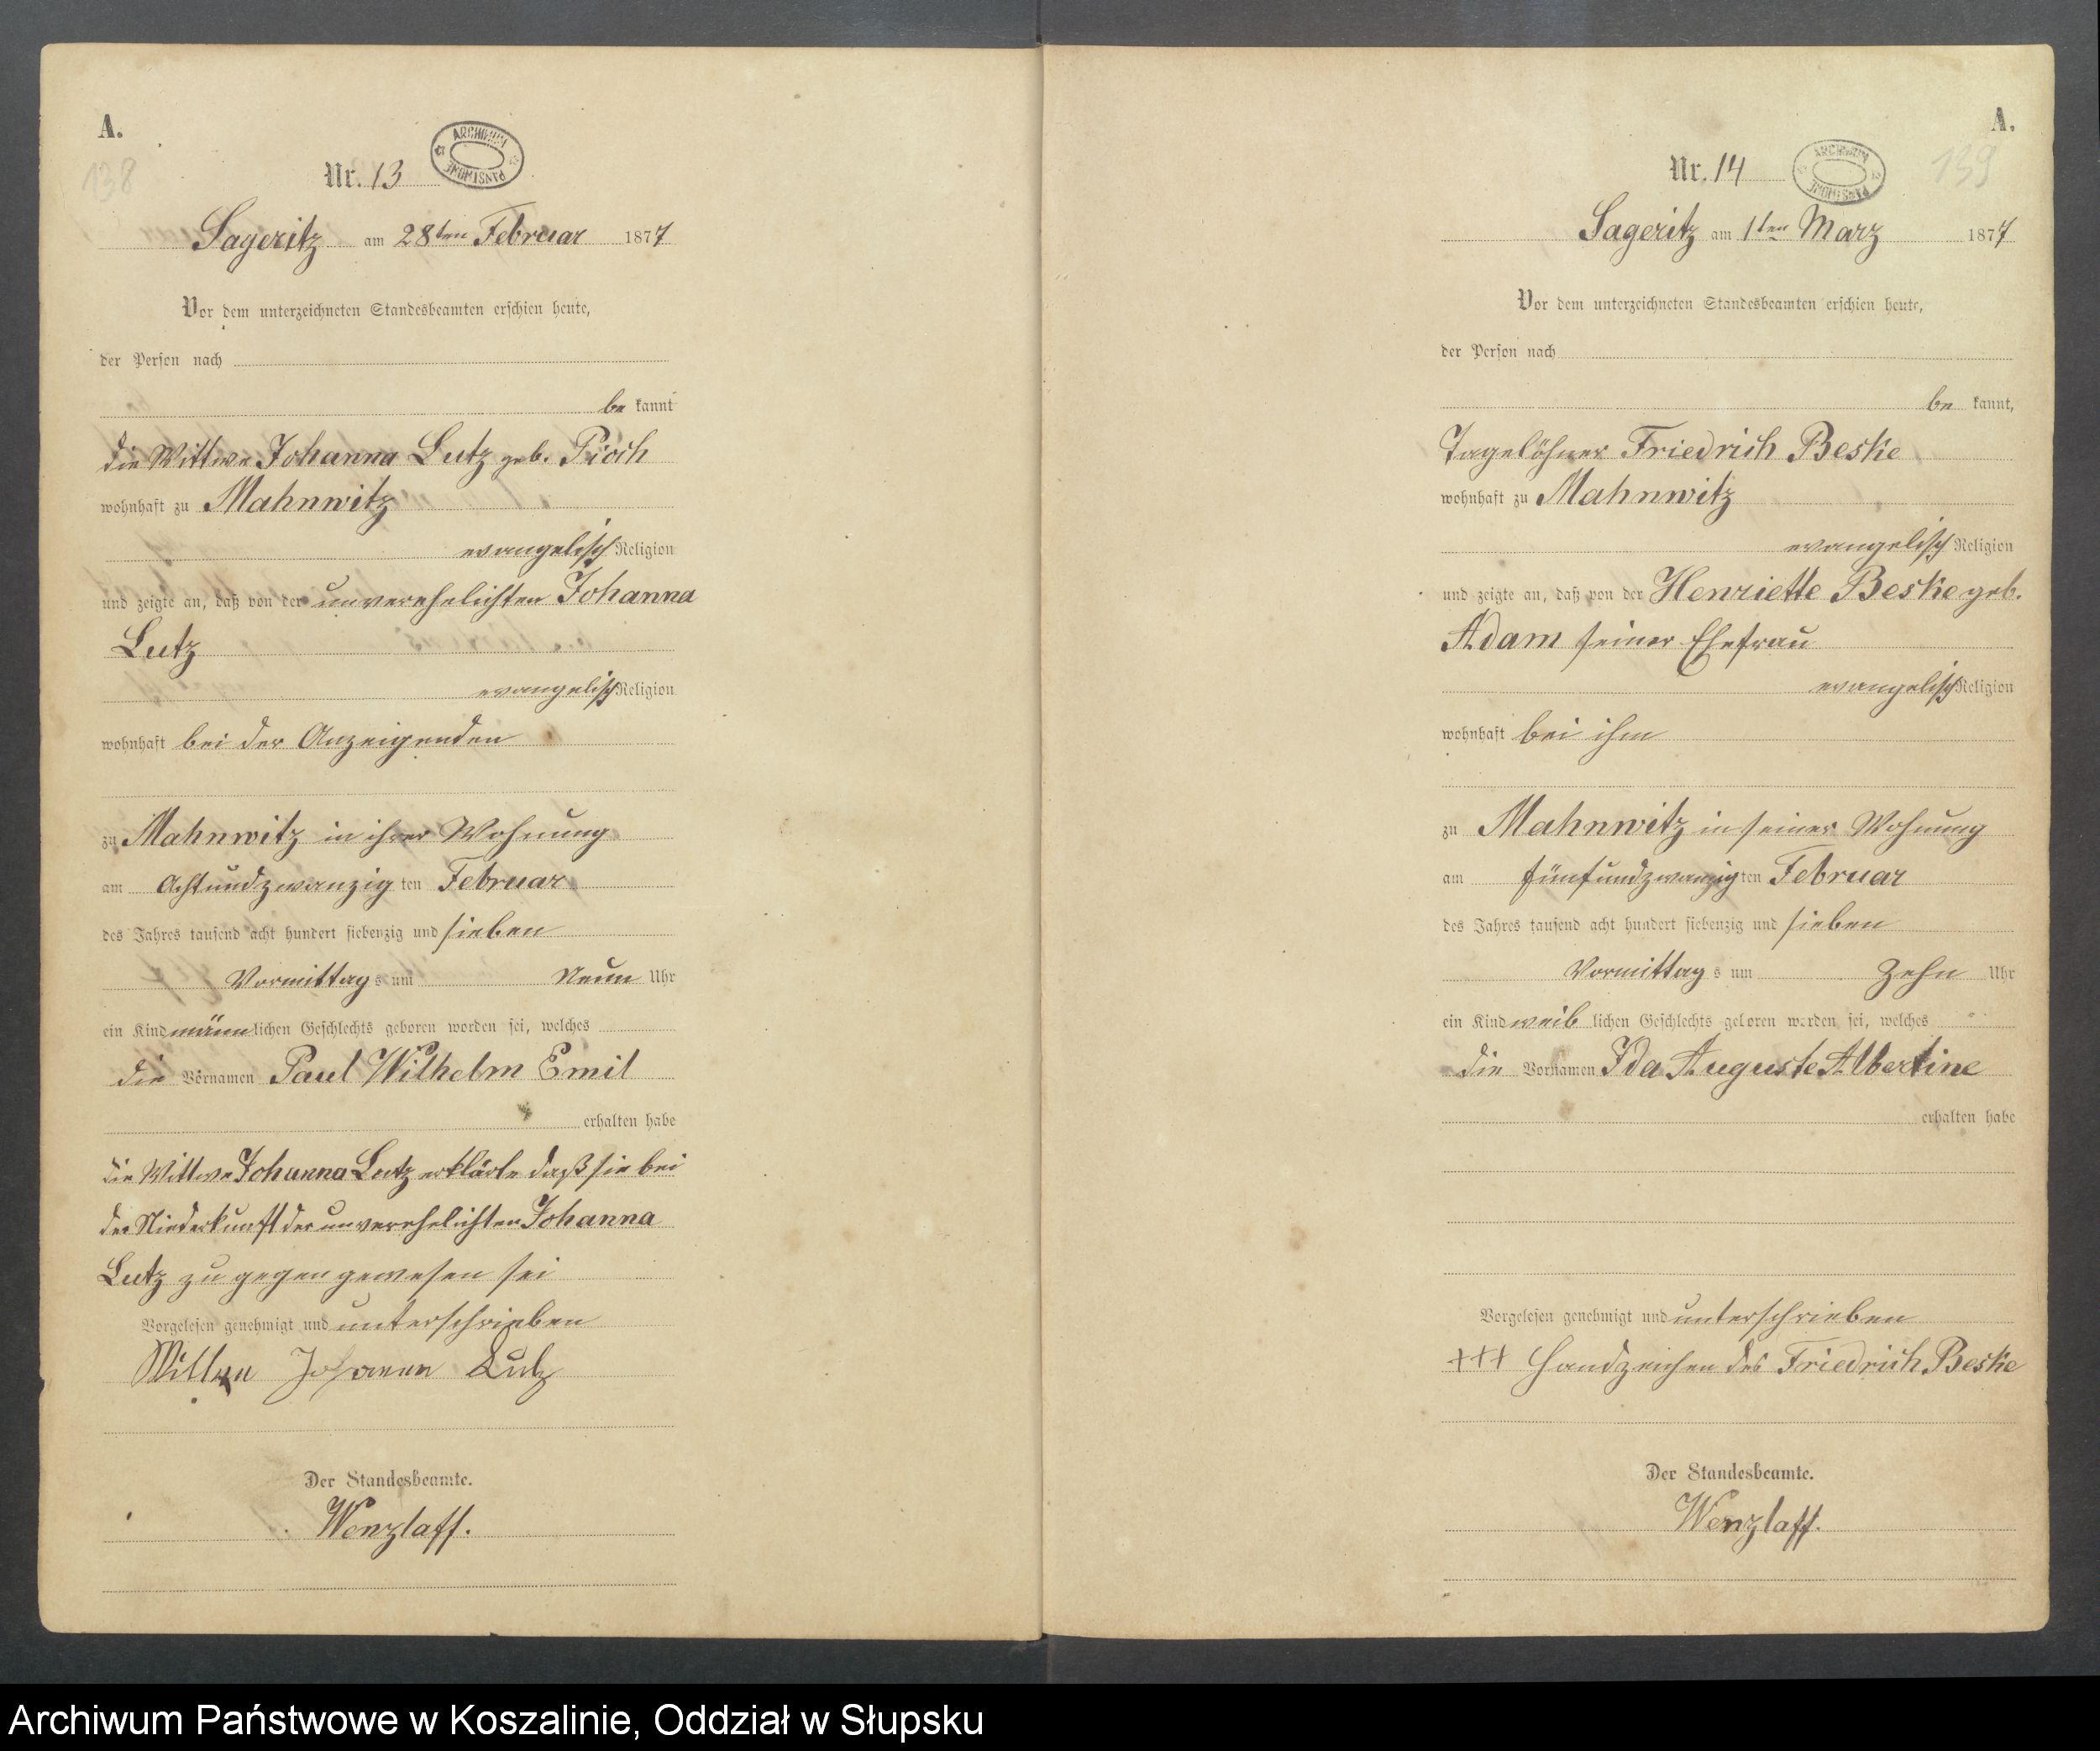 A.
138
Nr. 13
ARCHIWUM PAŃSTWOWE
Sageritz am 28ten Februar 1877
Vor dem unterzeichneten Standesbeamten erschien heute,
der Person nach
be kannt
die Wittwe Johanna Lutz geb. Pioch
wohnhaft zu Mahnwitz
evangelisch Religion
und zeigte an, daß von der unverehelichten Johanna
Lutz
evangelisch Religion
wohnhaft bei der Anzeigenden
zu Mahnwitz in ihrer Wohnung
am Achtundzwanzig ten Februar
des Jahres tausend acht hundert siebenzig und sieben
Vormittag s um Neun Uhr
ein Kind männ lichen Geschlechts geboren worden sei, welches
die Vornamen Paul Wilhelm Emil
erhalten habe
die Wittwe Johanna Lutz erklärte daß sie bei
der Niederkunft der unverehelichten Johanna
Lutz zu gegen gewesen sei
Vorgelesen genehmigt und unterschrieben
Wittwe Johanna Lutz
Der Standesbeamte.
Wenzlaff.
A.
139
Nr. 14
ARCHIWUM PAŃSTWOWE
Sageritz am 1ten Marz 1877
Vor dem unterzeichneten Standesbeamten erschien heute,
der Person nach
be kannt,
Tagelöhner Friedrich Beske
wohnhaft zu Mahnwitz
evangelisch Religion
und zeigte an, daß von der Henriette Beske geb.
Adam seiner Ehefrau
evangelisch Religion
wohnhaft bei ihm
zu Mahnwitz in seiner Wohnung
am fünfundzwanzig ten Februar
des Jahres tausend acht hundert siebenzig und sieben
Vormittag s um Zehn Uhr
ein Kind weib lichen Geschlechts geboren worden sei, welches
die Vornamen Ida Auguste Albertine
erhalten habe
Vorgelesen genehmigt und unterschrieben
+++ Handzeichen des Friedrich Beske
Der Standesbeamte.
Wenzlaff.
Archiwum Państwowe w Koszalinie, Oddział w Słupsku